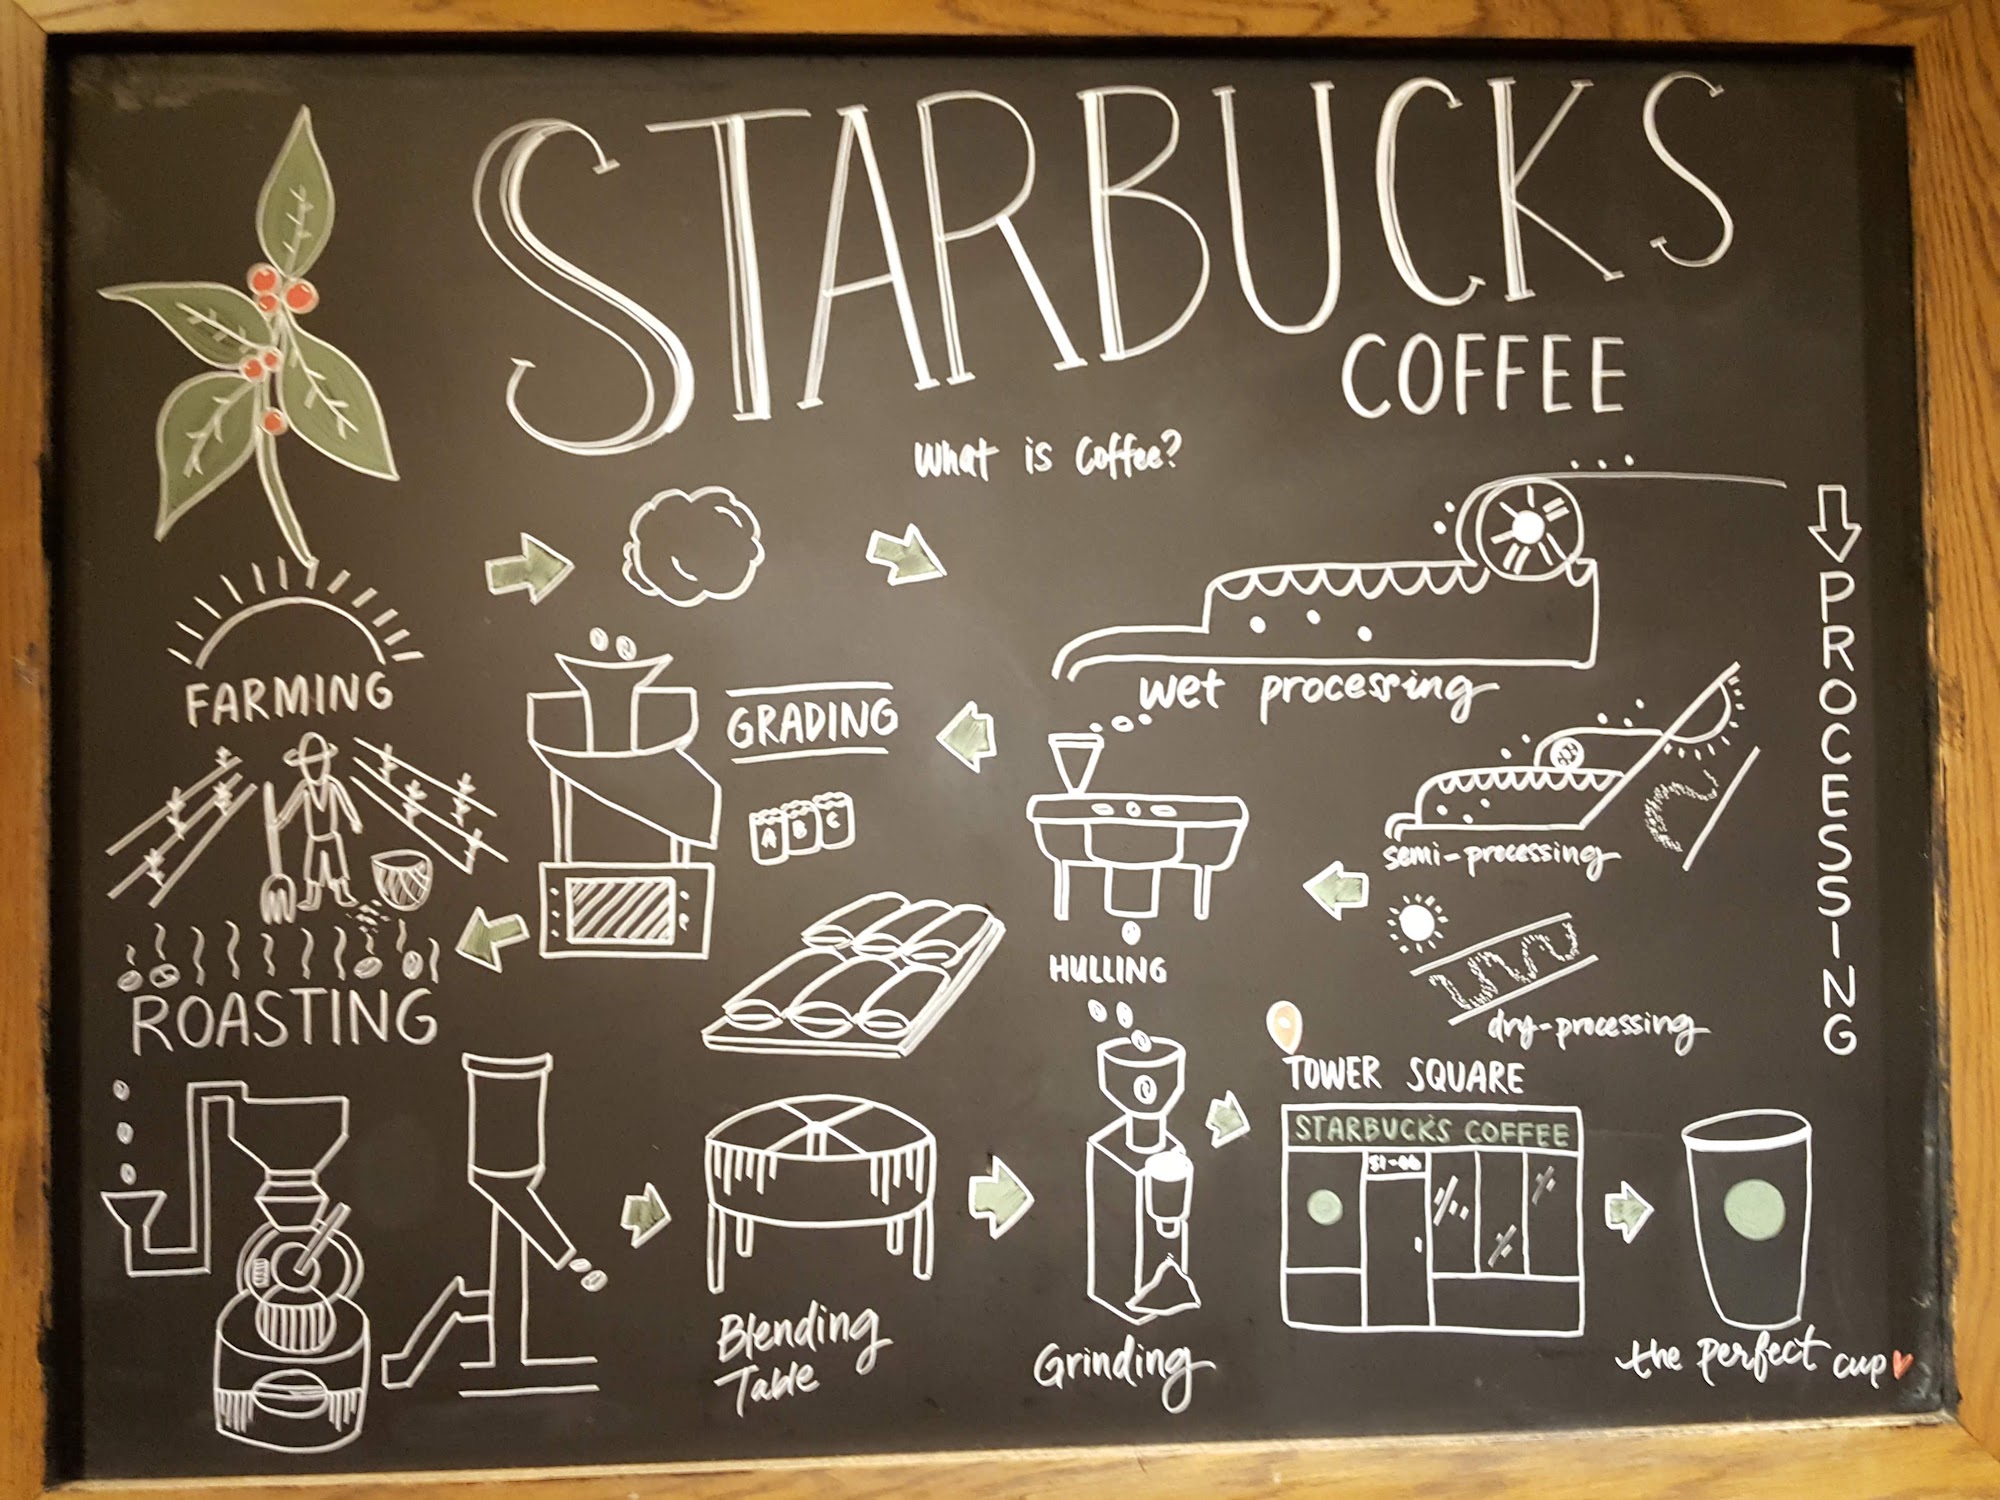 STARBUCKS
COFFEE
What is Coffee?
FARMING
PROCESSING
wet processing
semi-processing
dry-processing
HULLING
GRADING
A B C
ROASTING
Blending
Table
Grinding
TOWER SQUARE
STARBUCKS COFFEE
the perfect cup